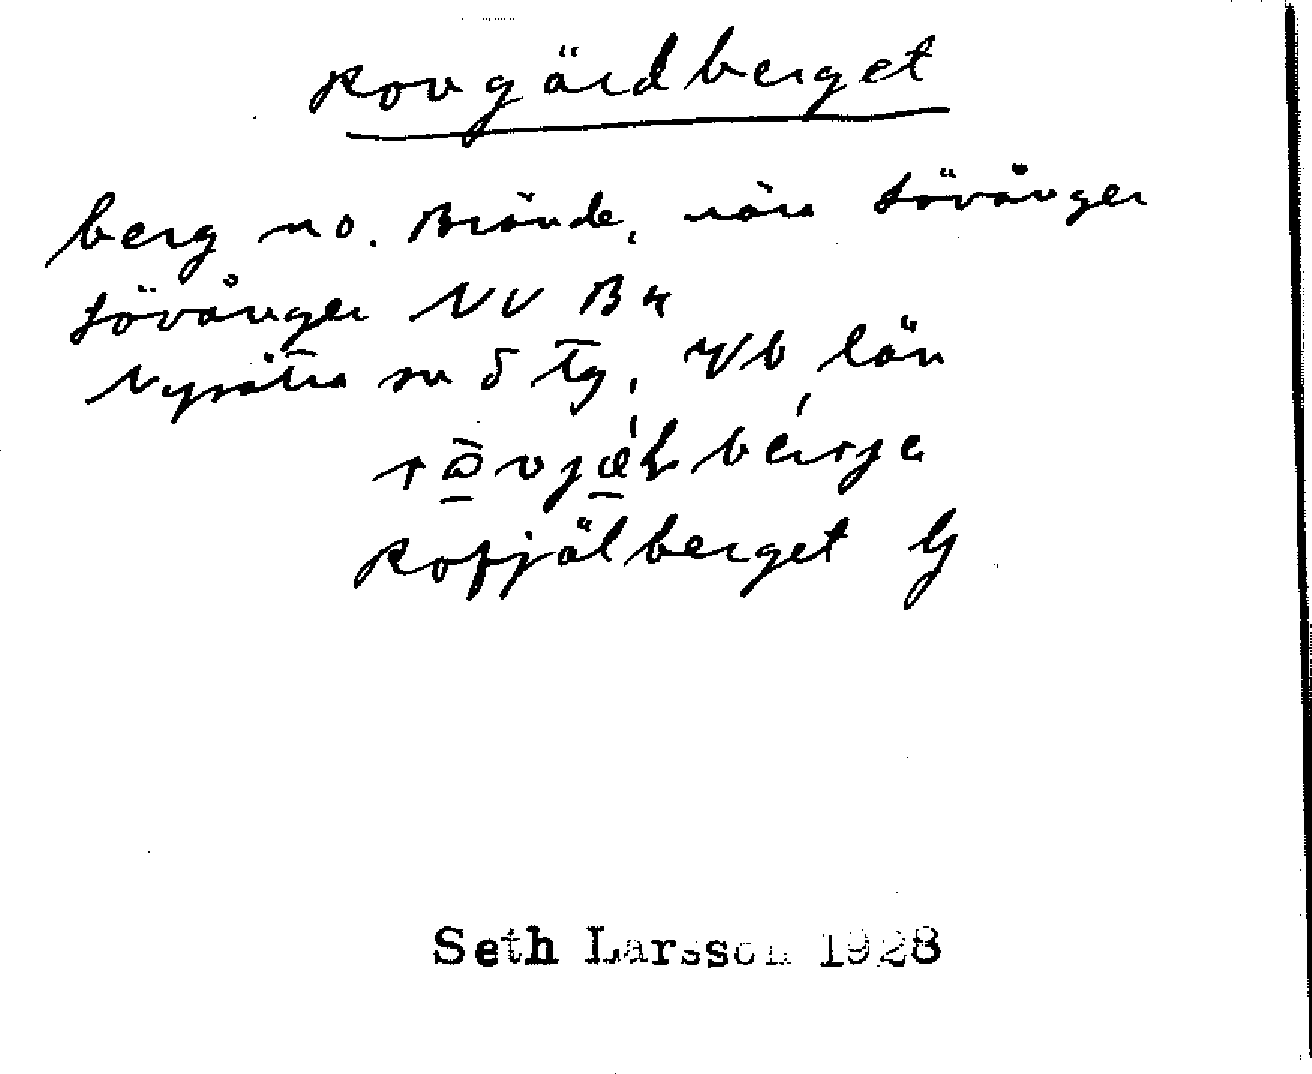 Rovgärdberget
berg no. Brände, nära Lövånger
Lövånger NV B4
Nysätra sn o Tg, Vb län
Rofjälberget G
Seth Larsson 1928